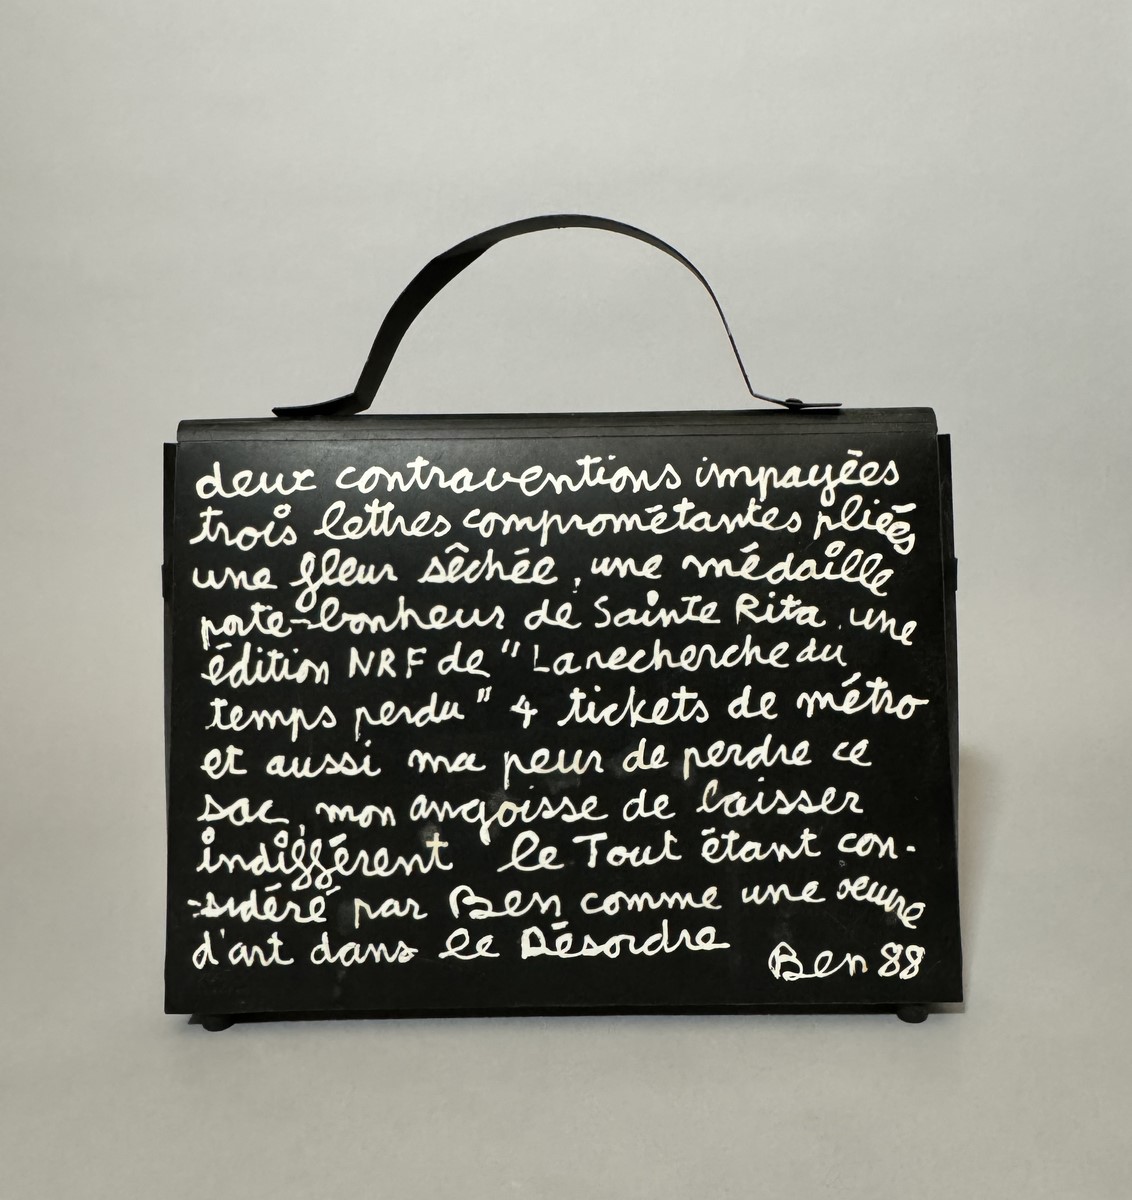 deux contraventions impayées
trois lettres comprométantes pliées
une fleur sêchée, une médaille
porte-bonheur de Sainte Rita, une
édition NRF de "La recherche du
temps perdu" 4 tickets de métro
et aussi ma peur de perdre ce
sac, mon angoisse de laisser
indifférent le Tout étant con-
-sidéré par Ben comme une oeuvre
d'art dans le Désordre
Ben 88